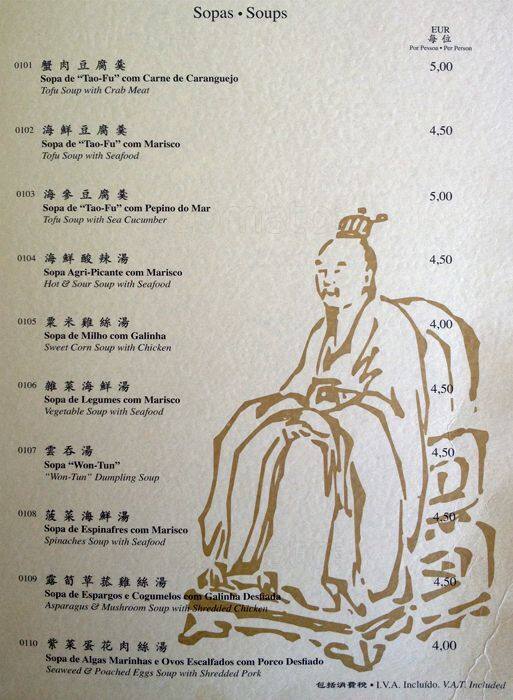 Sopas • Soups
EUR
每位
Por Pessoa • Per Person
0101 蟹肉豆腐羹 5,00
Sopa de “Tao-Fu” com Carne de Caranguejo
Tofu Soup with Crab Meat
0102 海鮮豆腐羹 4,50
Sopa de “Tao-Fu” com Marisco
Tofu Soup with Seafood
0103 海參豆腐羹 5,00
Sopa de “Tao-Fu” com Pepino do Mar
Tofu Soup with Sea Cucumber
0104 海鮮酸辣湯 4,50
Sopa Agri-Picante com Marisco
Hot & Sour Soup with Seafood
0105 粟米雞絲湯 4,00
Sopa de Milho com Galinha
Sweet Corn Soup with Chicken
0106 雜菜海鮮湯 4,50
Sopa de Legumes com Marisco
Vegetable Soup with Seafood
0107 雲吞湯 4,50
Sopa “Won-Tun”
“Won-Tun” Dumpling Soup
0108 菠菜海鮮湯 4,50
Sopa de Espinafres com Marisco
Spinaches Soup with Seafood
0109 露筍草菇雞絲湯 4,50
Sopa de Espargos e Cogumelos com Galinha Desfiada
Asparagus & Mushroom Soup with Shredded Chicken
0110 紫菜蛋花肉絲湯 4,00
Sopa de Algas Marinhas e Ovos Escalfados com Porco Desfiado
Seaweed & Poached Eggs Soup with Shredded Pork
包括消費稅 • I.V.A. Incluído. V.A.T. Included